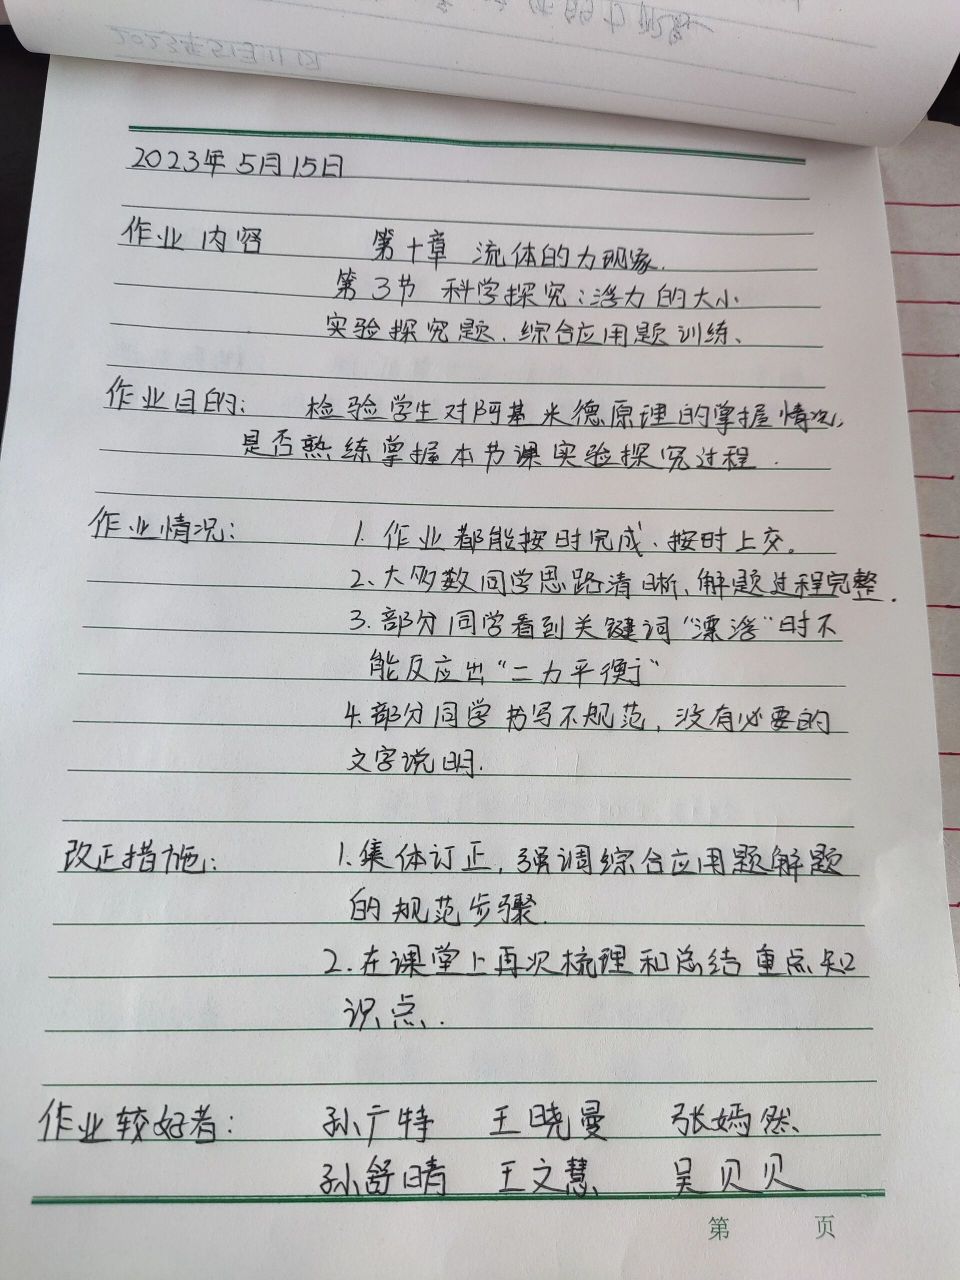 2023年5月15日
作业内容 第十章 流体的力现象.
第3节 科学探究:浮力的大小
实验探究题、综合应用题训练、
作业目的: 检验学生对阿基米德原理的掌握情况,
是否熟练掌握本节课实验探究过程.
作业情况: 1. 作业都能按时完成、按时上交。
2、大多数同学思路清晰、解题过程完整.
3. 部分同学看到关键词“漂浮”时不
能反应出“二力平衡”
4. 部分同学书写不规范, 没有必要的
文字说明.
改正措施: 1. 集体订正, 强调综合应用题解题
的规范步骤.
2. 在课堂上再次梳理和总结重点知
识点.
作业较好者: 孙广特 王晓曼 张嫣然、
孙舒晴 王文慧 吴贝贝
第 页